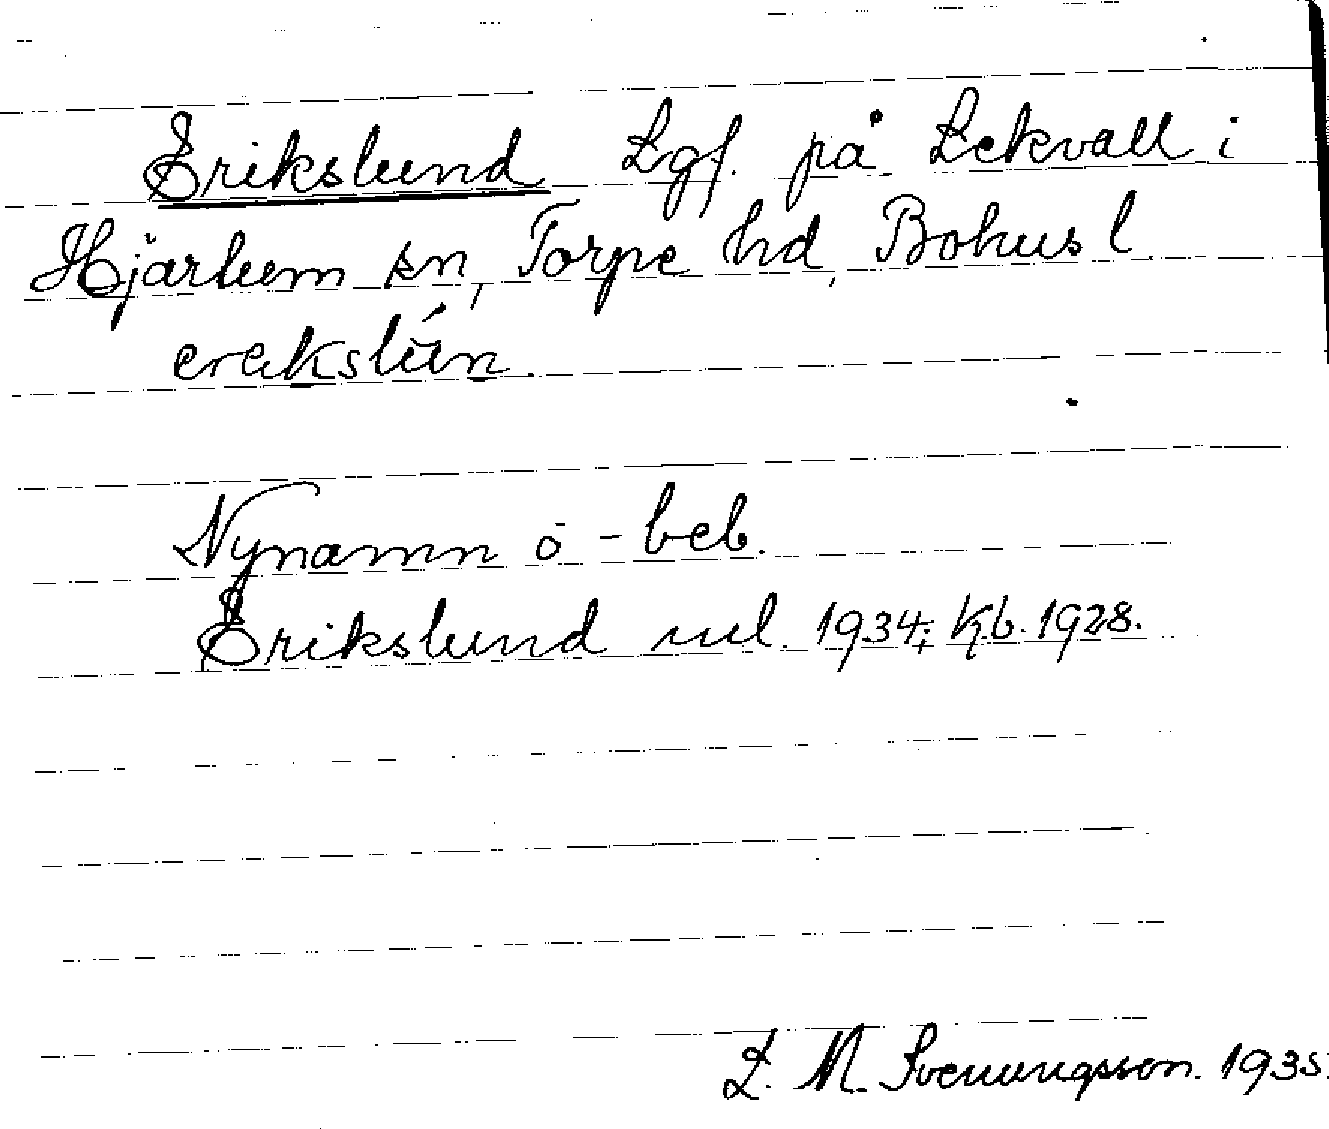 Erikslund Lgf. på Lekvall i
Hjärtum sn, Torpe hd, Bohus l.
Nynamn o - beb.
Erikslund ml. 1934; Kb. 1928.
L. M. Svenungsson. 1935.